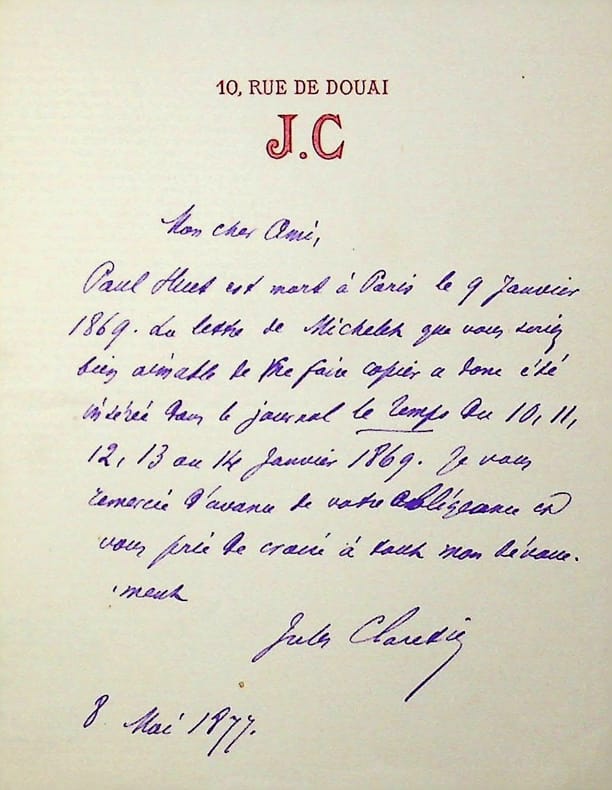 10, RUE DE DOUAI
J.C
Mon cher Ami,
Paul Huet est mort à Paris le 9 Janvier
1869. La lettre de Michelet que vous seriez
bien aimable de me faire copier a donc été
insérée dans le journal le Temps du 10, 11,
12, 13 ou 14 Janvier 1869. Je vous
remercie d'avance de votre obligeance et
vous prie de croire à tout mon dévoue-
-ment
Jules Claretie
8 Mai 1877.